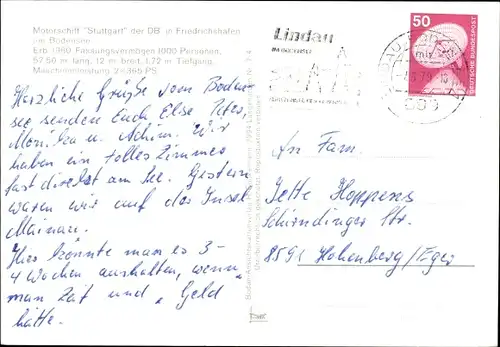 Motorschiff "Stuttgart" der DB in Friedrichshafen
am Bodensee
Erb. 1960 Fassungsvermögen 1000 Personen,
57.50 m lang, 12 m breit, 1.72 m Tiefgang,
Maschinenleistung 2 x 365 PS
Herzliche Grüße vom Boden-
see senden Euch Else Peter,
Monika u. Achim. Wir
haben ein tolles Zimmer
fast direkt am See. Gestern
waren wir auf der Insel
Mainau.
Hier könnte man es 3-
4 Wochen aushalten, wenn
man Zeit und "Geld
hätte.
Lindau
50
DEUTSCHE BUNDESPOST
An Fam.
Jette Hoppens
Schirndinger Str.
8591 Hohenberg/Eger